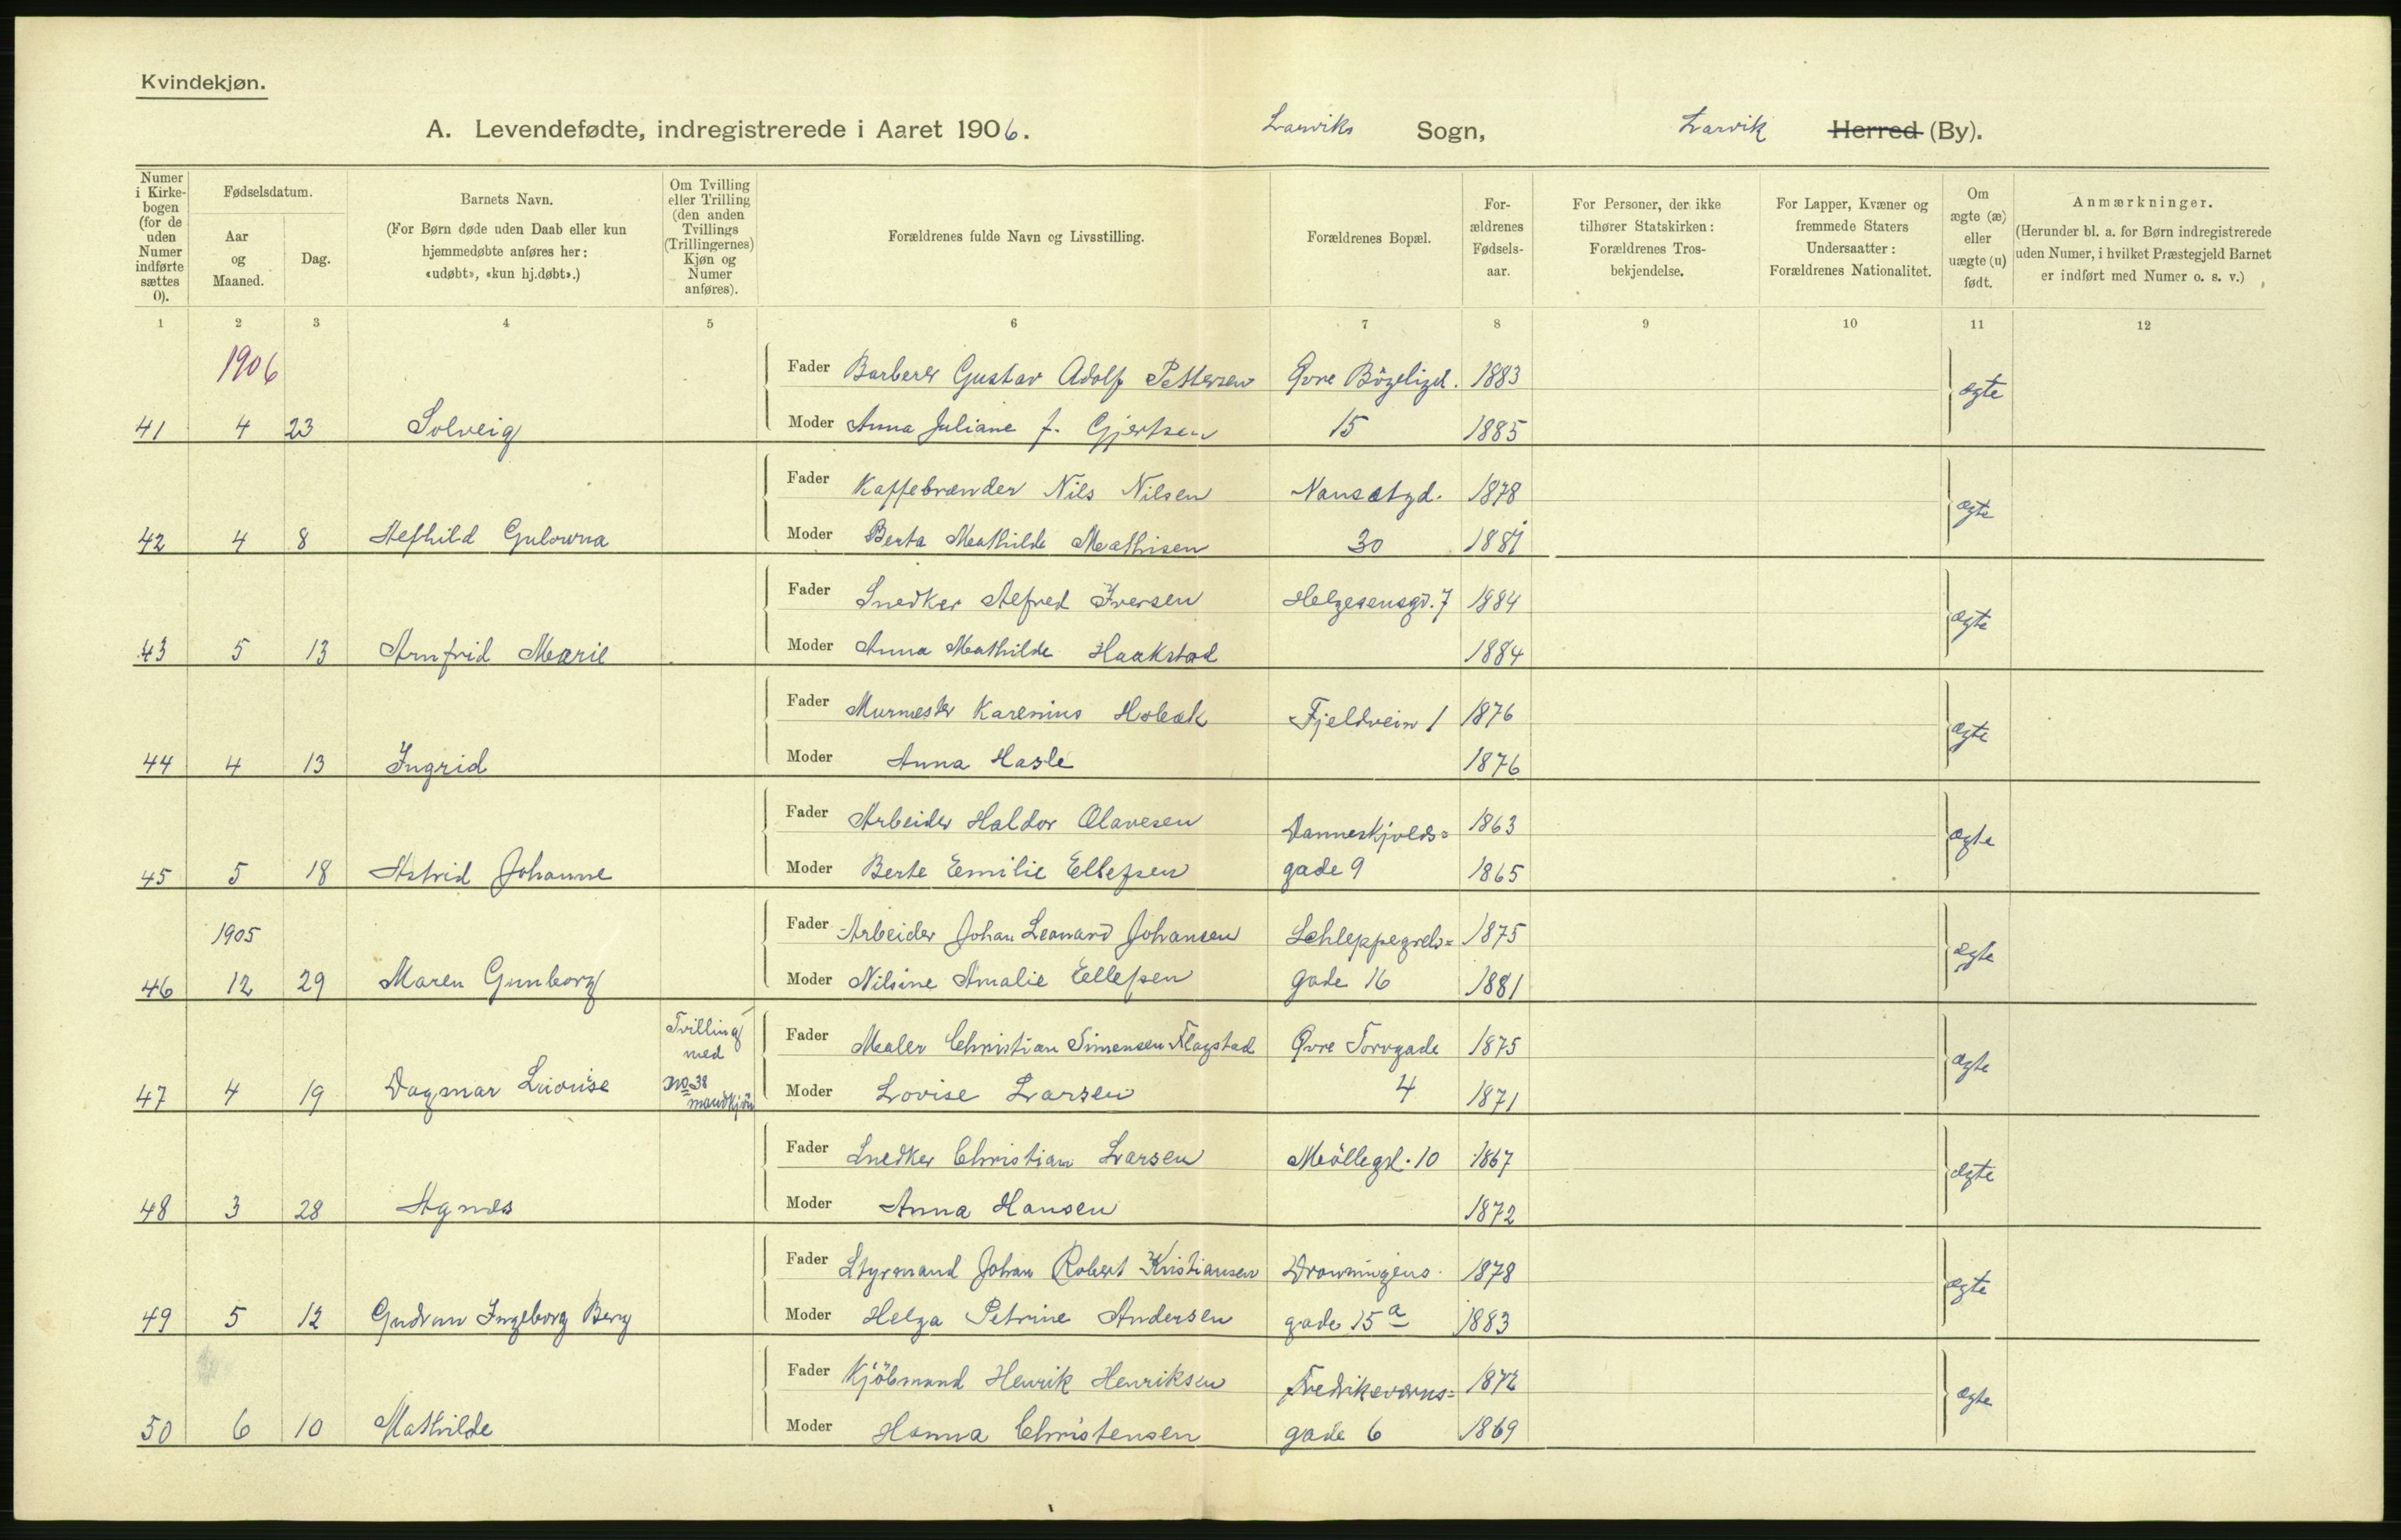 Kvindekjøn.
A. Levendefødte, indregistrerede i Aaret 1906. Larviks Sogn, Larvik Herred (By).
Numer i Kirkebogen (for de uden Numer indførte sættes 0).
Fødselsdatum.
Aar og Maaned.
Dag.
Barnets Navn.
(For Børn døde uden Daab eller kun hjemmedøbte anføres her: «udøbt», «kun hj.døbt».)
Om Tvilling eller Trilling (den anden Tvillings (Trillingernes) Kjøn og Numer anføres).
Forældrenes fulde Navn og Livsstilling.
Forældrenes Bopæl.
Forældrenes Fødselsaar.
For Personer, der ikke tilhører Statskirken: Forældrenes Trosbekjendelse.
For Lapper, Kvæner og fremmede Staters Undersaatter: Forældrenes Nationalitet.
Om ægte (æ) eller uægte (u) født.
Anmærkninger.
(Herunder bl. a. for Børn indregistrerede uden Numer, i hvilket Præstegjeld Barnet er indført med Numer o. s. v.)
1 2 3 4 5 6 7 8 9 10 11 12
1906
Fader Barberer Gustav Adolf Pettersen Øvre Bøgeligd. 1883 ægte
41 4 23 Solveig Moder Anna Juliane f. Gjertsen 15 1885
Fader Kaffebrænder Nils Nilsen Nansetgd. 1878 ægte
42 4 8 Alfhild Moder Berta Mathilde Mathisen 30 1881
Fader Snedker Alfred Iversen Helgesensgd. 7 1884 ægte
43 5 13 Arnfrid Marie Moder Anna Mathilde Haakstad 1884
Fader Murmester Karenius Holbæk Fjeldvein 1 1876 ægte
44 4 13 Ingrid Moder Anna Hasle 1876
Fader Arbeider Haldor Olavesen Danneskjolds= 1863 ægte
45 5 18 Astrid Johanne Moder Berte Emilie Ellefsen gade 9 1865
1905 Fader Arbeider Johan Leonard Johansen Schleppegrels= 1875 ægte
46 12 29 Maren Gunborg Moder Nilsine Amalie Ellefsen gade 16 1881
Tvilling med Fader Maler Christian Simensen Flagstad Øvre Torvgade 1875 ægte
47 4 19 Dagmar Lovise No 38 mandkjøn Moder Lovise Larsen 4 1871
Fader Snedker Christian Larsen Møllegd. 10 1867 ægte
48 3 28 Agnes Moder Anna Hansen 1872
Fader Styrmand Johan Robert Kristiansen Dronningens 1878 ægte
49 5 12 Gudrun Ingeborg Berg Moder Helga Petrine Andersen gade 15 a 1883
Fader Kjøbmand Henrik Henriksen Fredriksværns= 1872 ægte
50 6 10 Mathilde Moder Hanna Christensen gade 6 1869